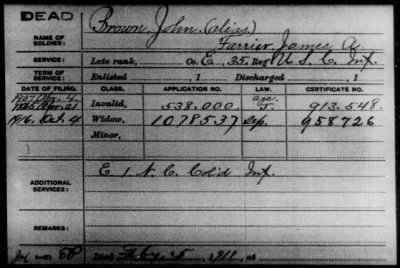 DEAD
NAME OF SOLDIER: Brown, John, (alias)
Farrier, James A.
SERVICE: Late rank, Co. E, 35, Reg't U.S.C. Inf.
TERM OF SERVICE: Enlisted , 1 Discharged , 1
DATE OF FILING. CLASS. APPLICATION NO. LAW. CERTIFICATE NO.
age
1885 Apr. 21 Invalid, 538.000. J. 913.548.
1916. Oct. 4 Widow, 1078537 958726
Minor,
ADDITIONAL SERVICES: E 1 N.C. Col'd Inf.
REMARKS:
Died 5, 1911, at